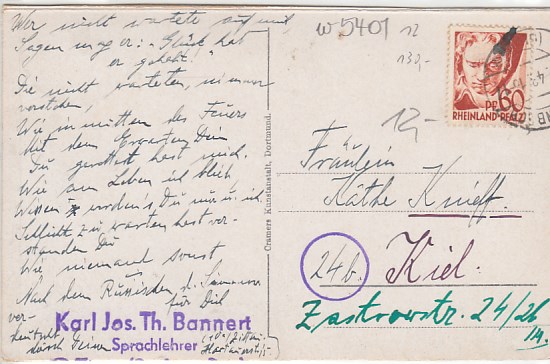 Wer nicht wartete auf mich
Sagen mag er: „Glück hat
er gehabt."
Die nicht warteten, nimmer
verstehen,
Wie inmitten des Feuers
Mit dem Erwarten Dein
Du gerettet hast mich.
Wie am Leben ich blieb
Wissen werden's Du nur u. ich.
Schlicht zu warten hast ver-
standen Du
Wie niemand sonst
Nach dem Russischen d. Simonow
für Dich
ver-
deutscht
durch Deinen
Karl Jos. Th. Bannert
Sprachlehrer
Cramers Kunstanstalt, Dortmund.
W 5401 12
130,-
12,-
PF. 60
RHEINLAND-PFALZ
Fräulein
Käthe Knieff.
24b
Kiel.
Zastrowstr. 24/26